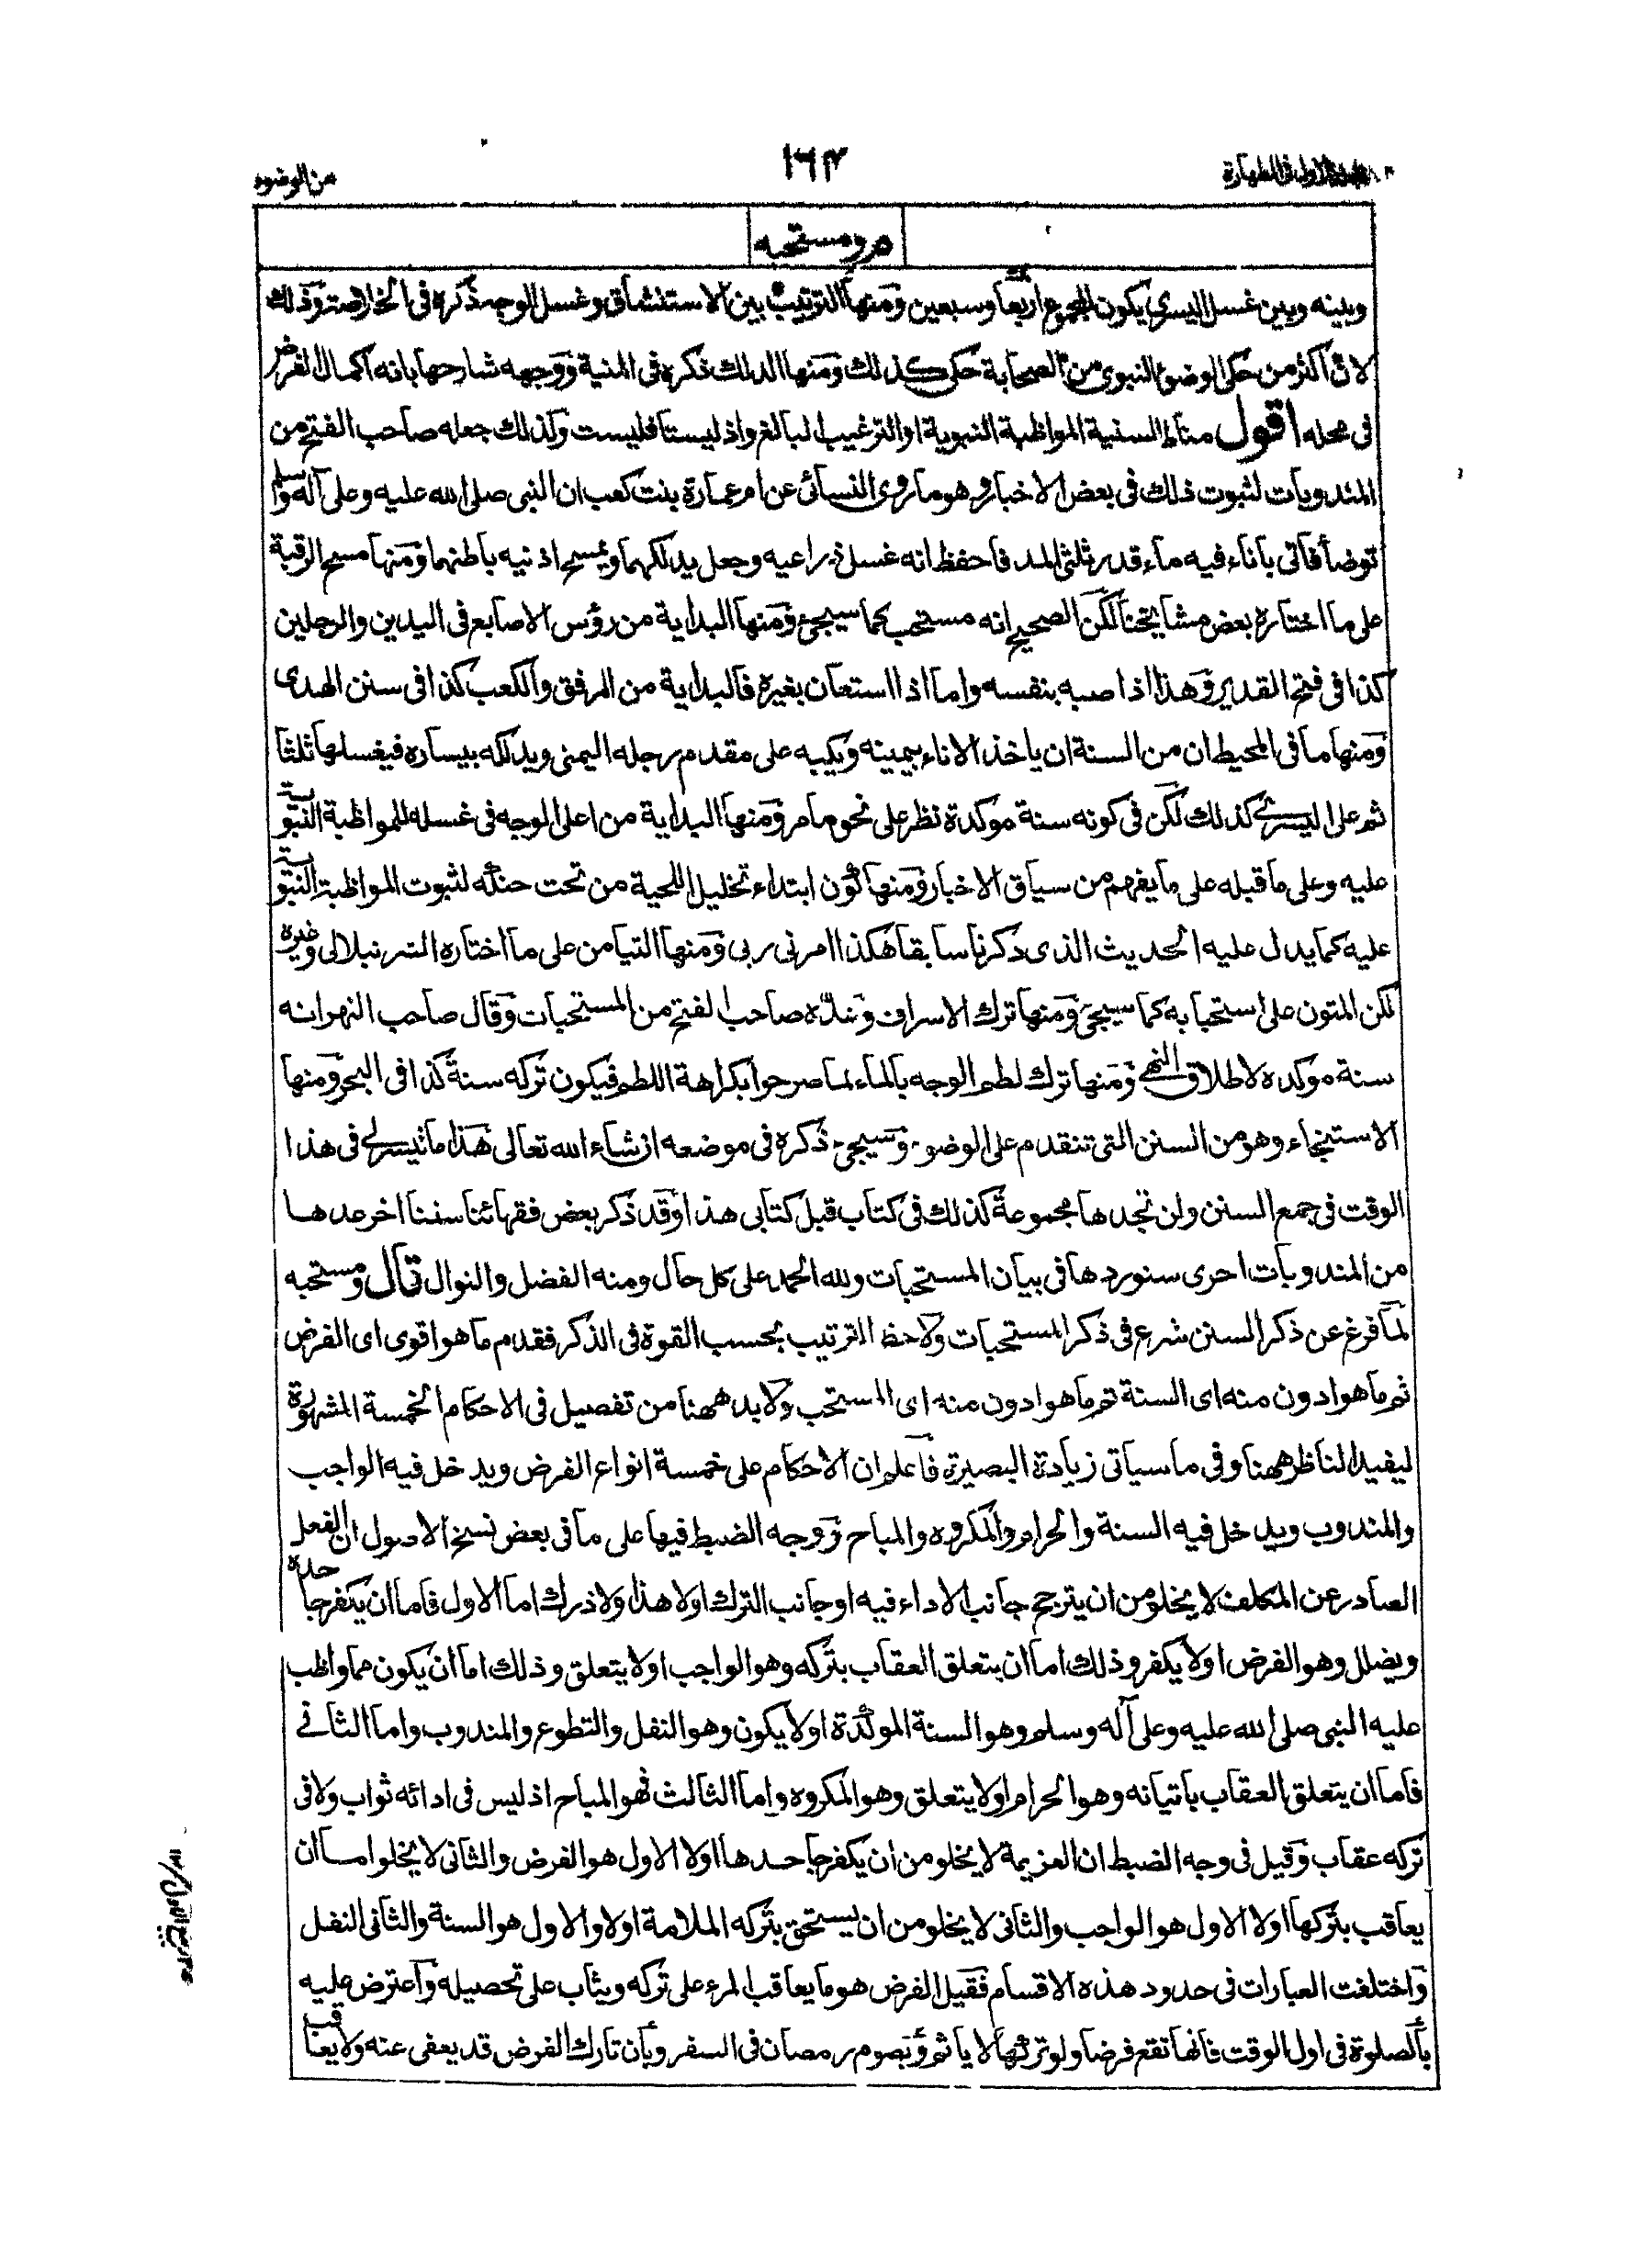 فى الطهارة
١٦٣
من الوضوء
مر ومستحبه
وبينه وبين غسل اليسرى يكون المجموع اربعا وسبعين ومنها الترتيب بين الاستنشاق وغسل الوجه ذكره فى الخلاصة وذلك
لان اكثر من حكى الوضوء النبوى من الصحابة حكى كذلك ومنها الدلك ذكره فى المنية ووجهه شارحها بانه اكمال الفرض
فى محله اقول مناط السنية المواظبة النبوية او الترغيب البالغ واذ ليستا فليست ولذلك جعله صاحب الفتح من
المندوبات لثبوت ذلك فى بعض الاخبار وهو ما روى النسائى عن ام عمارة بنت كعب ان النبى صلى الله عليه وعلى آله وسلم
توضأ فاتى باناء فيه ماء قدر ثلثى المد فاحفظ انه غسل ذراعيه وجعل يدلكهما ويمسح اذنيه باطنهما ومنها مسح الرقبة
على ما اختاره بعض مشايخنا لكن الصحيح انه مستحب كما سيجئ ومنها البداية من رؤس الاصابع فى اليدين والرجلين
كذا فى فتح القدير وهذا اذا صبه بنفسه واما اذا استعان بغيره فالبداية من المرفق والكعب كذا فى سنن الهدى
ومنها ما فى المحيط ان من السنة ان ياخذ الاناء بيمينه ويكبه على مقدم رجله اليمنى ويدلكه بيساره فيغسلها ثلثا
ثم على اليسرى كذلك لكن فى كونه سنة موكدة نظر على نحو ما مر ومنها البداية من اعلى الوجه فى غسله للمواظبة النبوية
عليه وعلى ما قبله على ما يفهم من سياق الاخبار ومنها كون ابتداء تخليل اللحية من تحت حنكه لثبوت المواظبة النبوية
عليه كما يدل عليه الحديث الذى ذكرنا سابقا هكذا امرنى ربى ومنها التيامن على ما اختاره الشرنبلالى وغيره
لكن المتون على استحبابه كما سيجئ ومنها ترك الاسراف وعده صاحب الفتح من المستحبات وقال صاحب النهر انه
سنة موكدة لاطلاق النهى ومنها ترك لطم الوجه بالماء لما صرحوا بكراهة اللطم فيكون تركه سنة كذا فى البحر ومنها
الاستنجاء وهو من السنن التى تتقدم على الوضوء وسيجئ ذكره فى موضعه ان شاء الله تعالى هذا ما تيسر لى فى هذا
الوقت فى جمع السنن ولن تجدها مجموعة كذلك فى كتاب قبل كتابى هذا وقد ذكر بعض فقهائنا سننا اخر عدها
من المندوبات احرى سنوردها فى بيان المستحبات ولله الحمد على كل حال ومنه الفضل والنوال قال ومستحبه
لما فرغ عن ذكر السنن شرع فى ذكر المستحبات ولاحظ الترتيب بحسب القوة فى الذكر فقدم ما هو اقوى اى الفرض
ثم ما هو ادون منه اى السنة ثم ما هو ادون منه اى المستحب ولا بد ههنا من تفصيل فى الاحكام الخمسة المشهورة
ليفيد الناظر ههنا وفى ما سياتى زيادة البصيرة فاعلم ان الاحكام على خمسة انواع الفرض ويدخل فيه الواجب
والمندوب ويدخل فيه السنة والحرام والمكروه والمباح ووجه الضبط فيها على ما فى بعض نسخ الاصول ان الفعل
الصادر عن المكلف لا يخلو من ان يترجح جانب الاداء فيه او جانب الترك اولا هذا ولا ذلك اما الاول فاما ان يكفر جاحده
ويضلل وهو الفرض اولا يكفر وذلك اما ان يتعلق العقاب بتركه وهو الواجب اولا يتعلق وذلك اما ان يكون مما واظب
عليه النبى صلى الله عليه وعلى آله وسلم وهو السنة الموكدة اولا يكون وهو النفل والتطوع والمندوب واما الثانى
فاما ان يتعلق العقاب باتيانه وهو الحرام اولا يتعلق وهو المكروه واما الثالث فهو المباح اذ ليس فى ادائه ثواب ولا فى
تركه عقاب وقيل فى وجه الضبط ان العزيمة لا يخلو من ان يكفر جاحدها اولا الاول هو الفرض والثانى لا يخلو اما ان
يعاقب بتركها اولا الاول هو الواجب والثانى لا يخلو من ان يستحق بتركه الملامة اولا والاول هو السنة والثانى النفل
واختلفت العبارات فى حدود هذه الاقسام فقيل الفرض هو ما يعاقب المرء على تركه ويثاب على تحصيله واعترض عليه
بالصلوة فى اول الوقت فانها تقع فرضا ولو تركها لا ياثم وبصوم رمضان فى السفر وبان تارك الفرض قد يعفى عنه ولا يعاقب